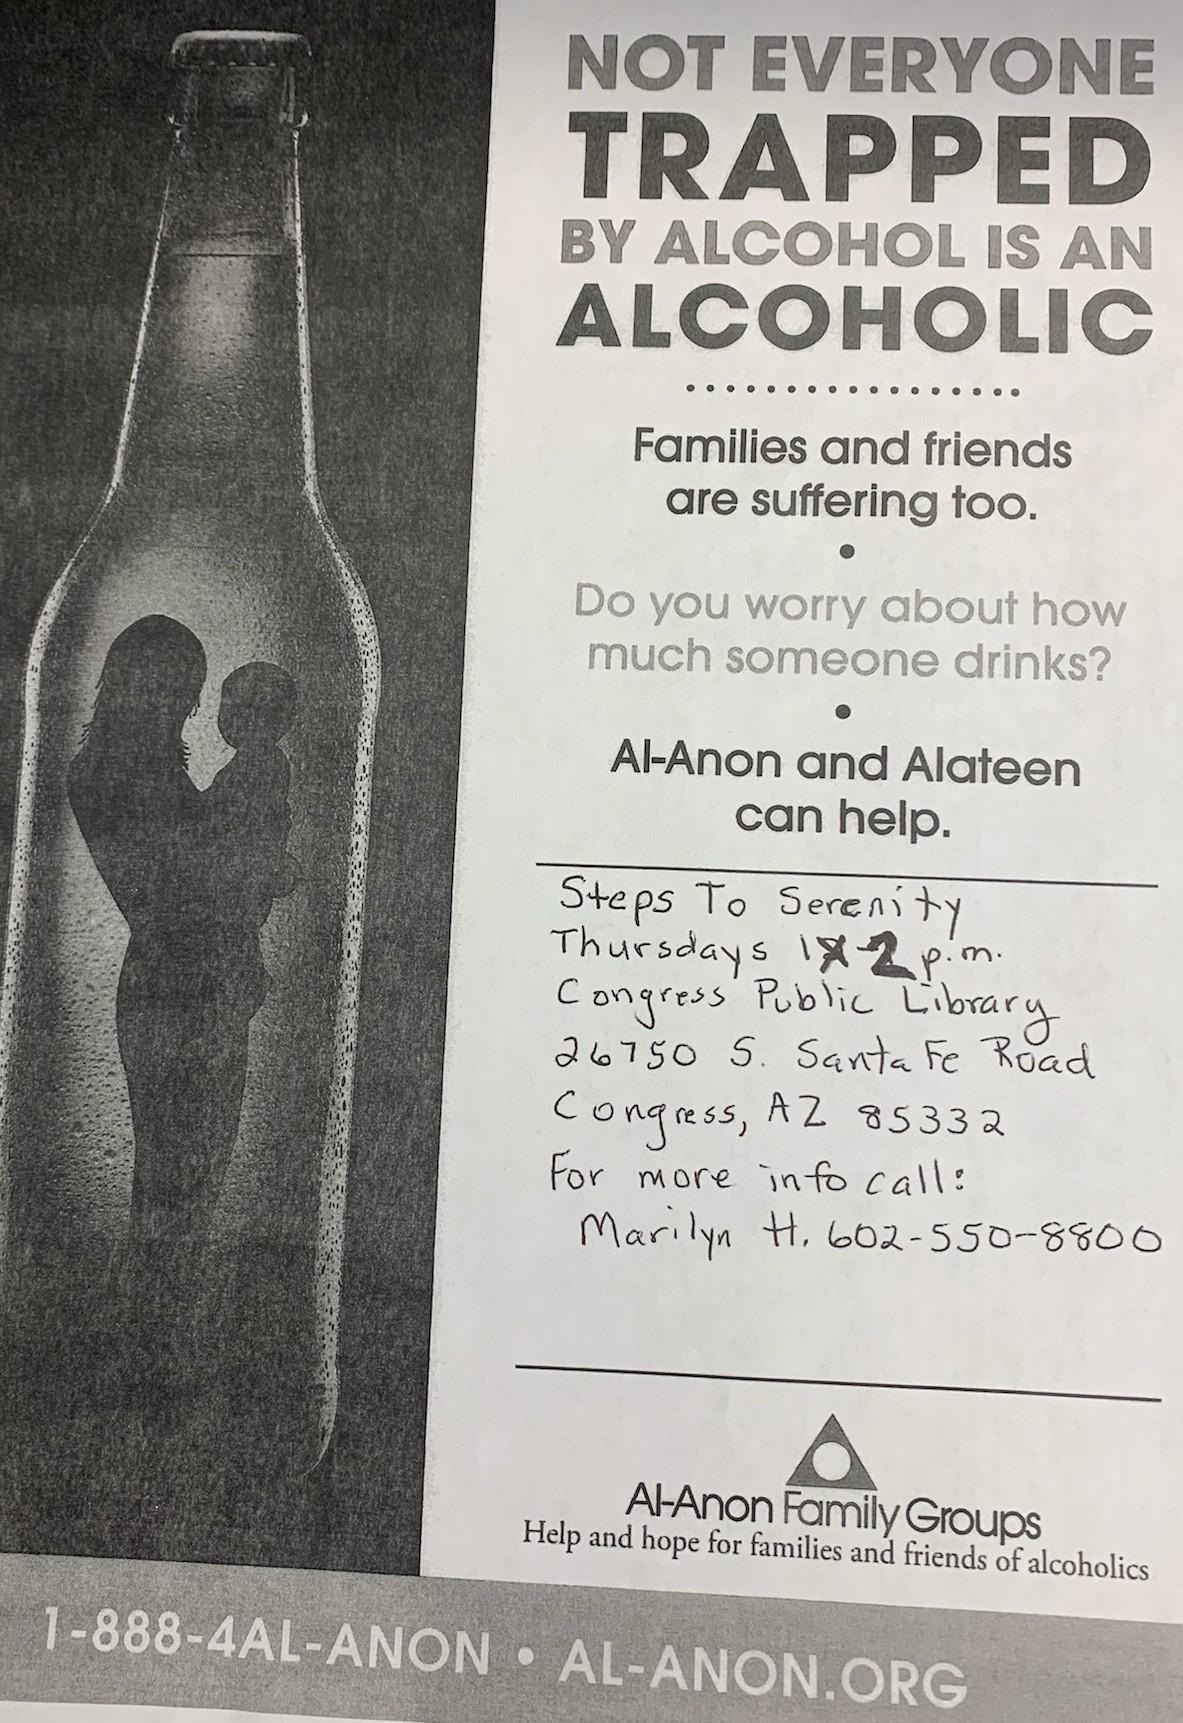 NOT EVERYONE
TRAPPED
BY ALCOHOL IS AN
ALCOHOLIC
Families and friends
are suffering too.
•
Do you worry about how
much someone drinks?
•
Al-Anon and Alateen
can help.
Steps To Serenity
Thursdays 1-2 p.m.
Congress Public Library
26750 S. Santa Fe Road
Congress, AZ 85332
For more info call:
Marilyn H. 602-550-8800
Al-Anon Family Groups
Help and hope for families and friends of alcoholics
1-888-4AL-ANON • AL-ANON.ORG